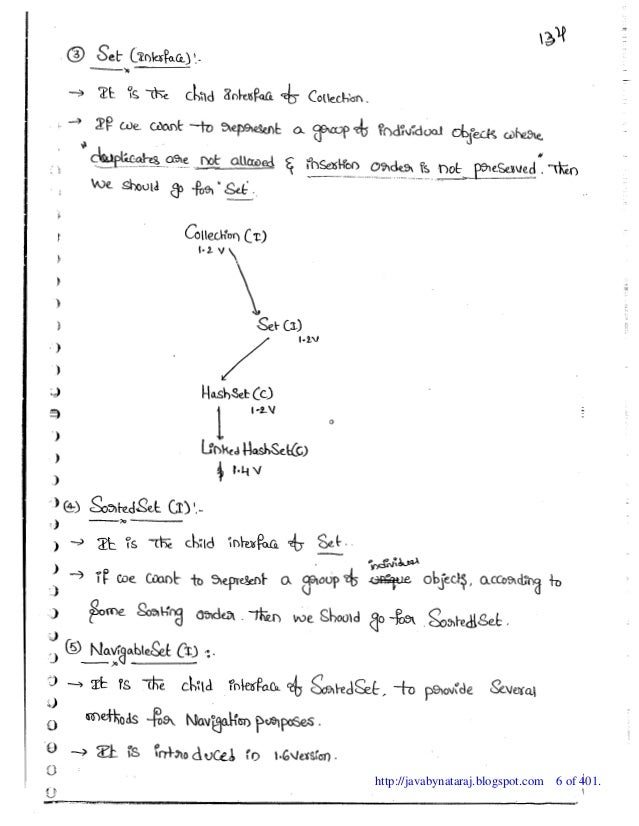 134
③ Set (Interface) :-
→ It is the child interface of Collection.
→ If we want to represent a group of individual objects where
"duplicates are not allowed & insertion order is not preserved". Then
we should go for "Set".
Collection (I)
1.2 V
Set (I)
1.2V
HashSet (C)
1.2 V
LinkedHashSet(C)
1.4 V
(4) SortedSet (I) :-
→ It is the child interface of Set.
individual
→ if we want to represent a group of unique objects, according to
Some Sorting order. Then we Should go for SortedSet.
(5) NavigableSet (I) :-
→ It is the child interface of SortedSet, to provide Several
methods for Navigation purposes.
→ It is introduced in 1.6 version.
http://javabynataraj.blogspot.com 6 of 401.